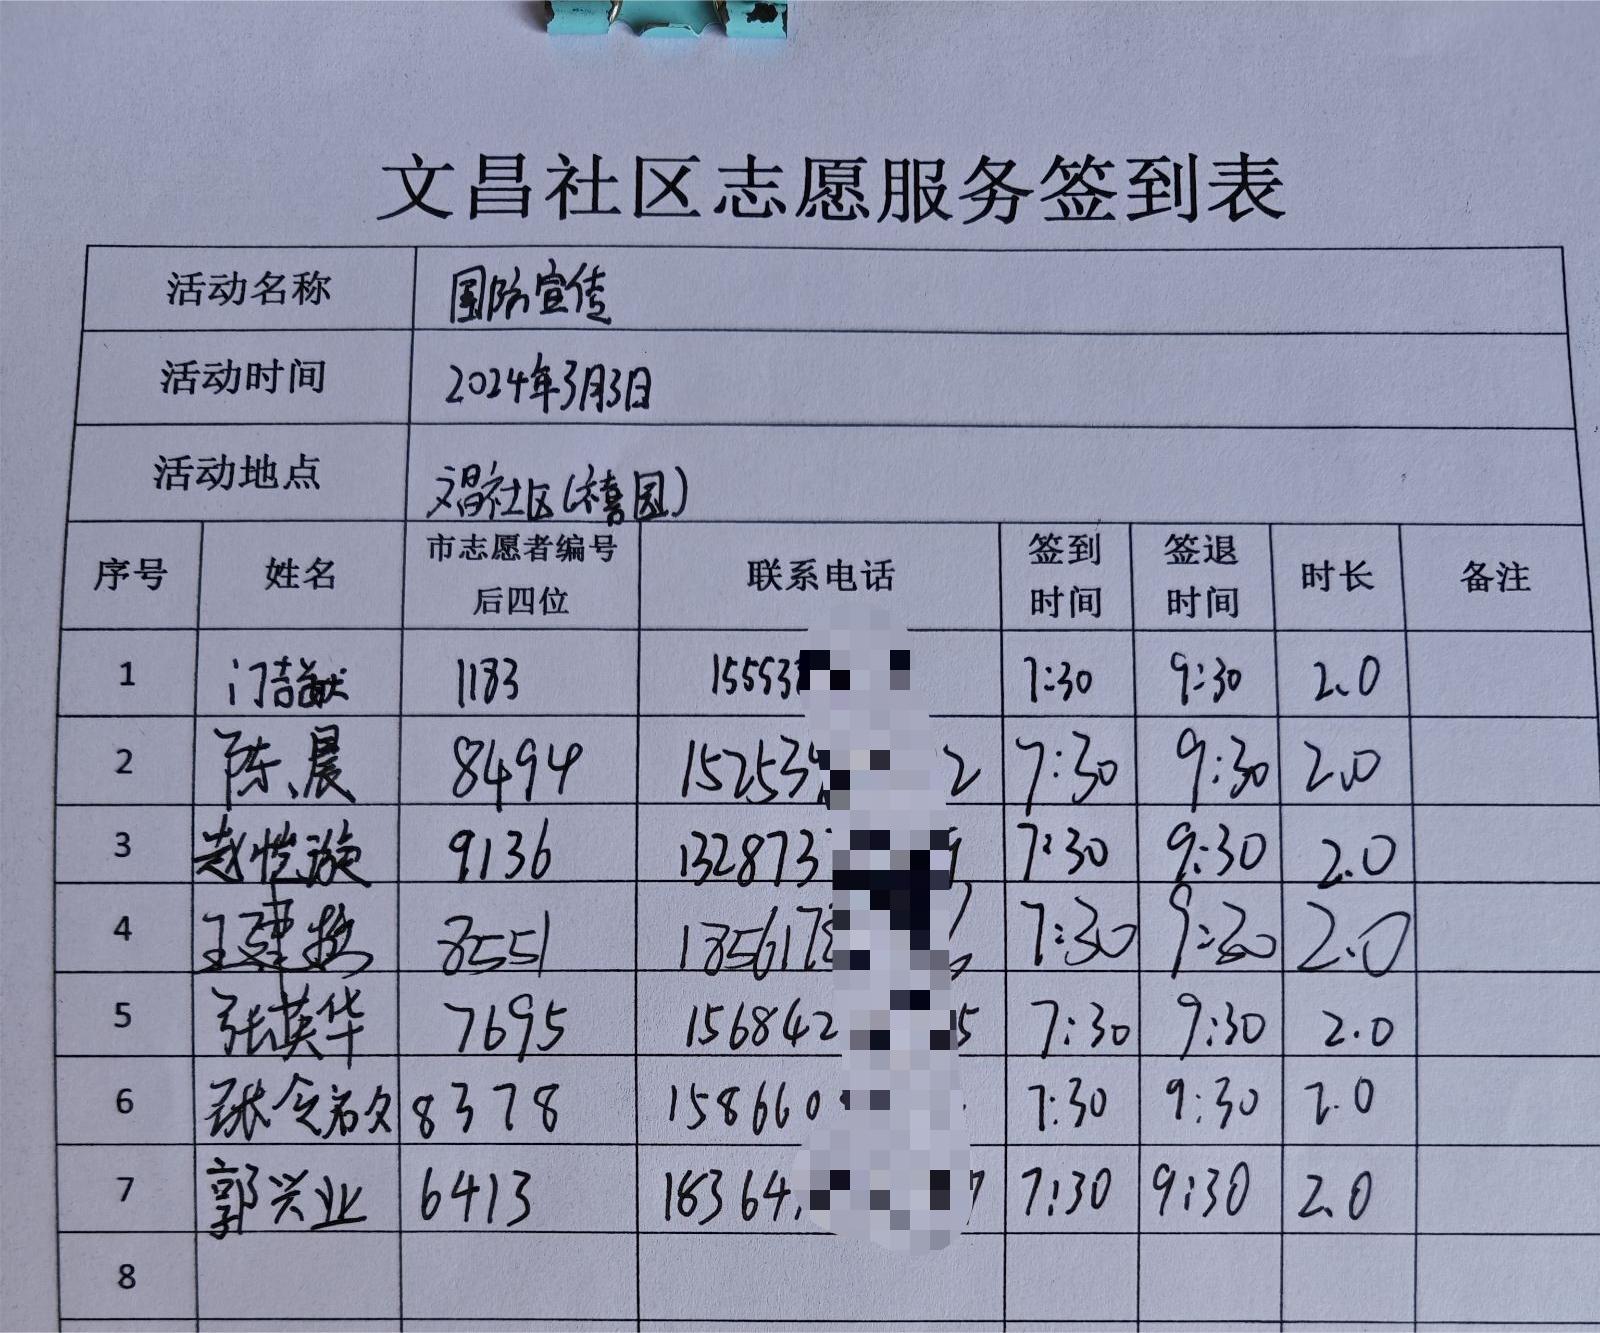 文昌社区志愿服务签到表
活动名称 国防宣传
活动时间 2024年3月3日
活动地点 文昌社区(禧园)
序号 姓名 市志愿者编号后四位 联系电话 签到时间 签退时间 时长 备注
1 门吉献 1183 15553 7:30 9:30 2.0
2 陈晨 8494 15253 2 7:30 9:30 2.0
3 赵恺漩 9136 132873 9 7:30 9:30 2.0
4 王建 8551 185617 7:30 9:30 2.0
5 张英华 7695 156842 5 7:30 9:30 2.0
6 张令 8378 158660 7:30 9:30 2.0
7 郭兴业 6413 18364 7 7:30 9:30 2.0
8